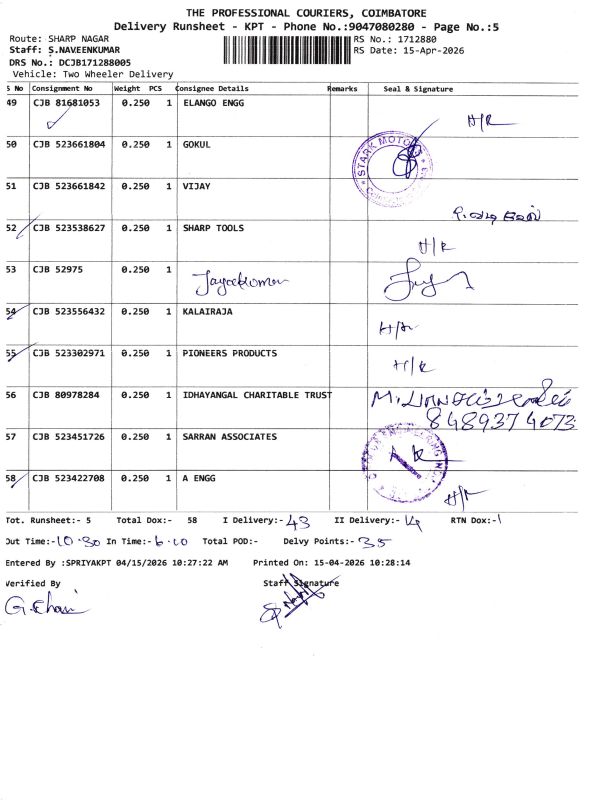 THE PROFESSIONAL COURIERS, COIMBATORE
Delivery Runsheet - KPT - Phone No.:9047080280 - Page No.:5
Route: SHARP NAGAR RS No.: 1712880
Staff: S.NAVEENKUMAR RS Date: 15-Apr-2026
DRS No.: DCJB171288005
Vehicle: Two Wheeler Delivery
S No Consignment No Weight PCS Consignee Details Remarks Seal & Signature
49 CJB 81681053 0.250 1 ELANGO ENGG H/R
50 CJB 523661804 0.250 1 GOKUL STARK MOTO
51 CJB 523661842 0.250 1 VIJAY
52 CJB 523538627 0.250 1 SHARP TOOLS H/R
53 CJB 52975 0.250 1 Jayakumar
54 CJB 523556432 0.250 1 KALAIRAJA H/R
55 CJB 523302971 0.250 1 PIONEERS PRODUCTS H/R
56 CJB 80978284 0.250 1 IDHAYANGAL CHARITABLE TRUST
8489374073
57 CJB 523451726 0.250 1 SARRAN ASSOCIATES
58 CJB 523422708 0.250 1 A ENGG H/R
Tot. Runsheet:- 5 Total Dox:- 58 I Delivery:- 43 II Delivery:- 14 RTN Dox:- 1
Out Time:- 10.30 In Time:- 6.10 Total POD:- Delvy Points:- 35
Entered By :SPRIYAKPT 04/15/2026 10:27:22 AM Printed On: 15-04-2026 10:28:14
Verified By Staff Signature